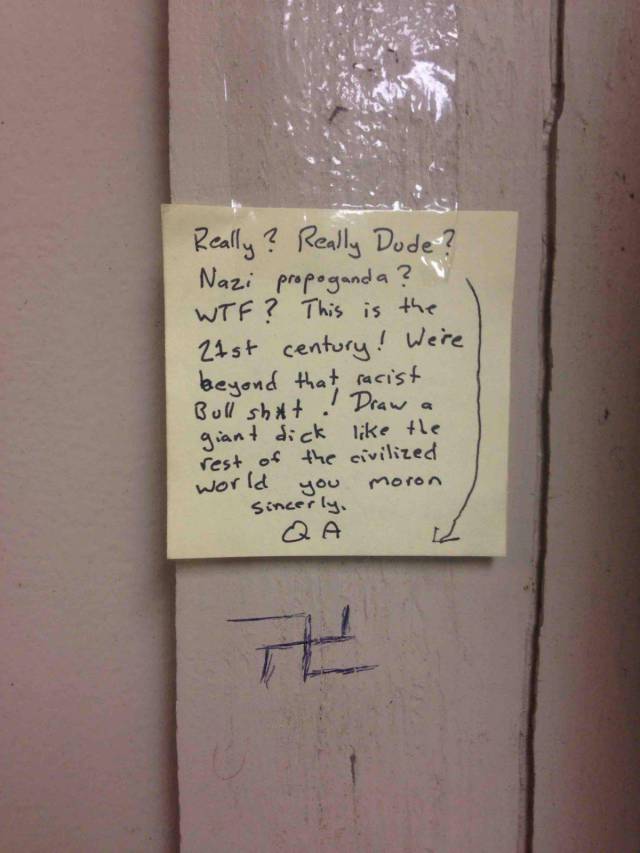 Really? Really Dude?
Nazi propoganda?
WTF? This is the
21st century! We're
beyond that racist
Bull sh*t! Draw a
giant dick like the
rest of the civilized
world you moron
sincerly.
QA